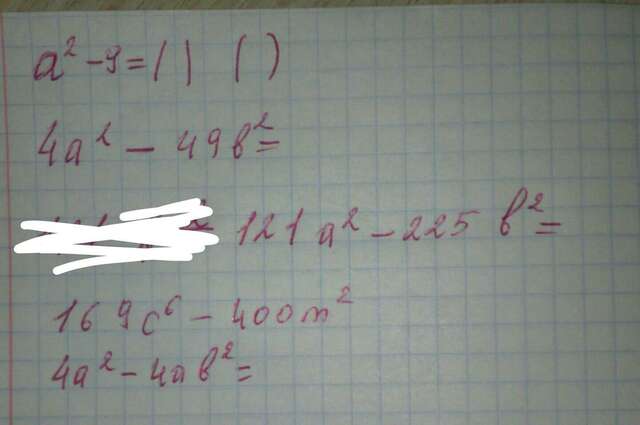 a² - 9 = ( ) ( )
4a² - 49b² =
121a² - 225b² =
169c⁶ - 400m²
4a² - 4ab² =